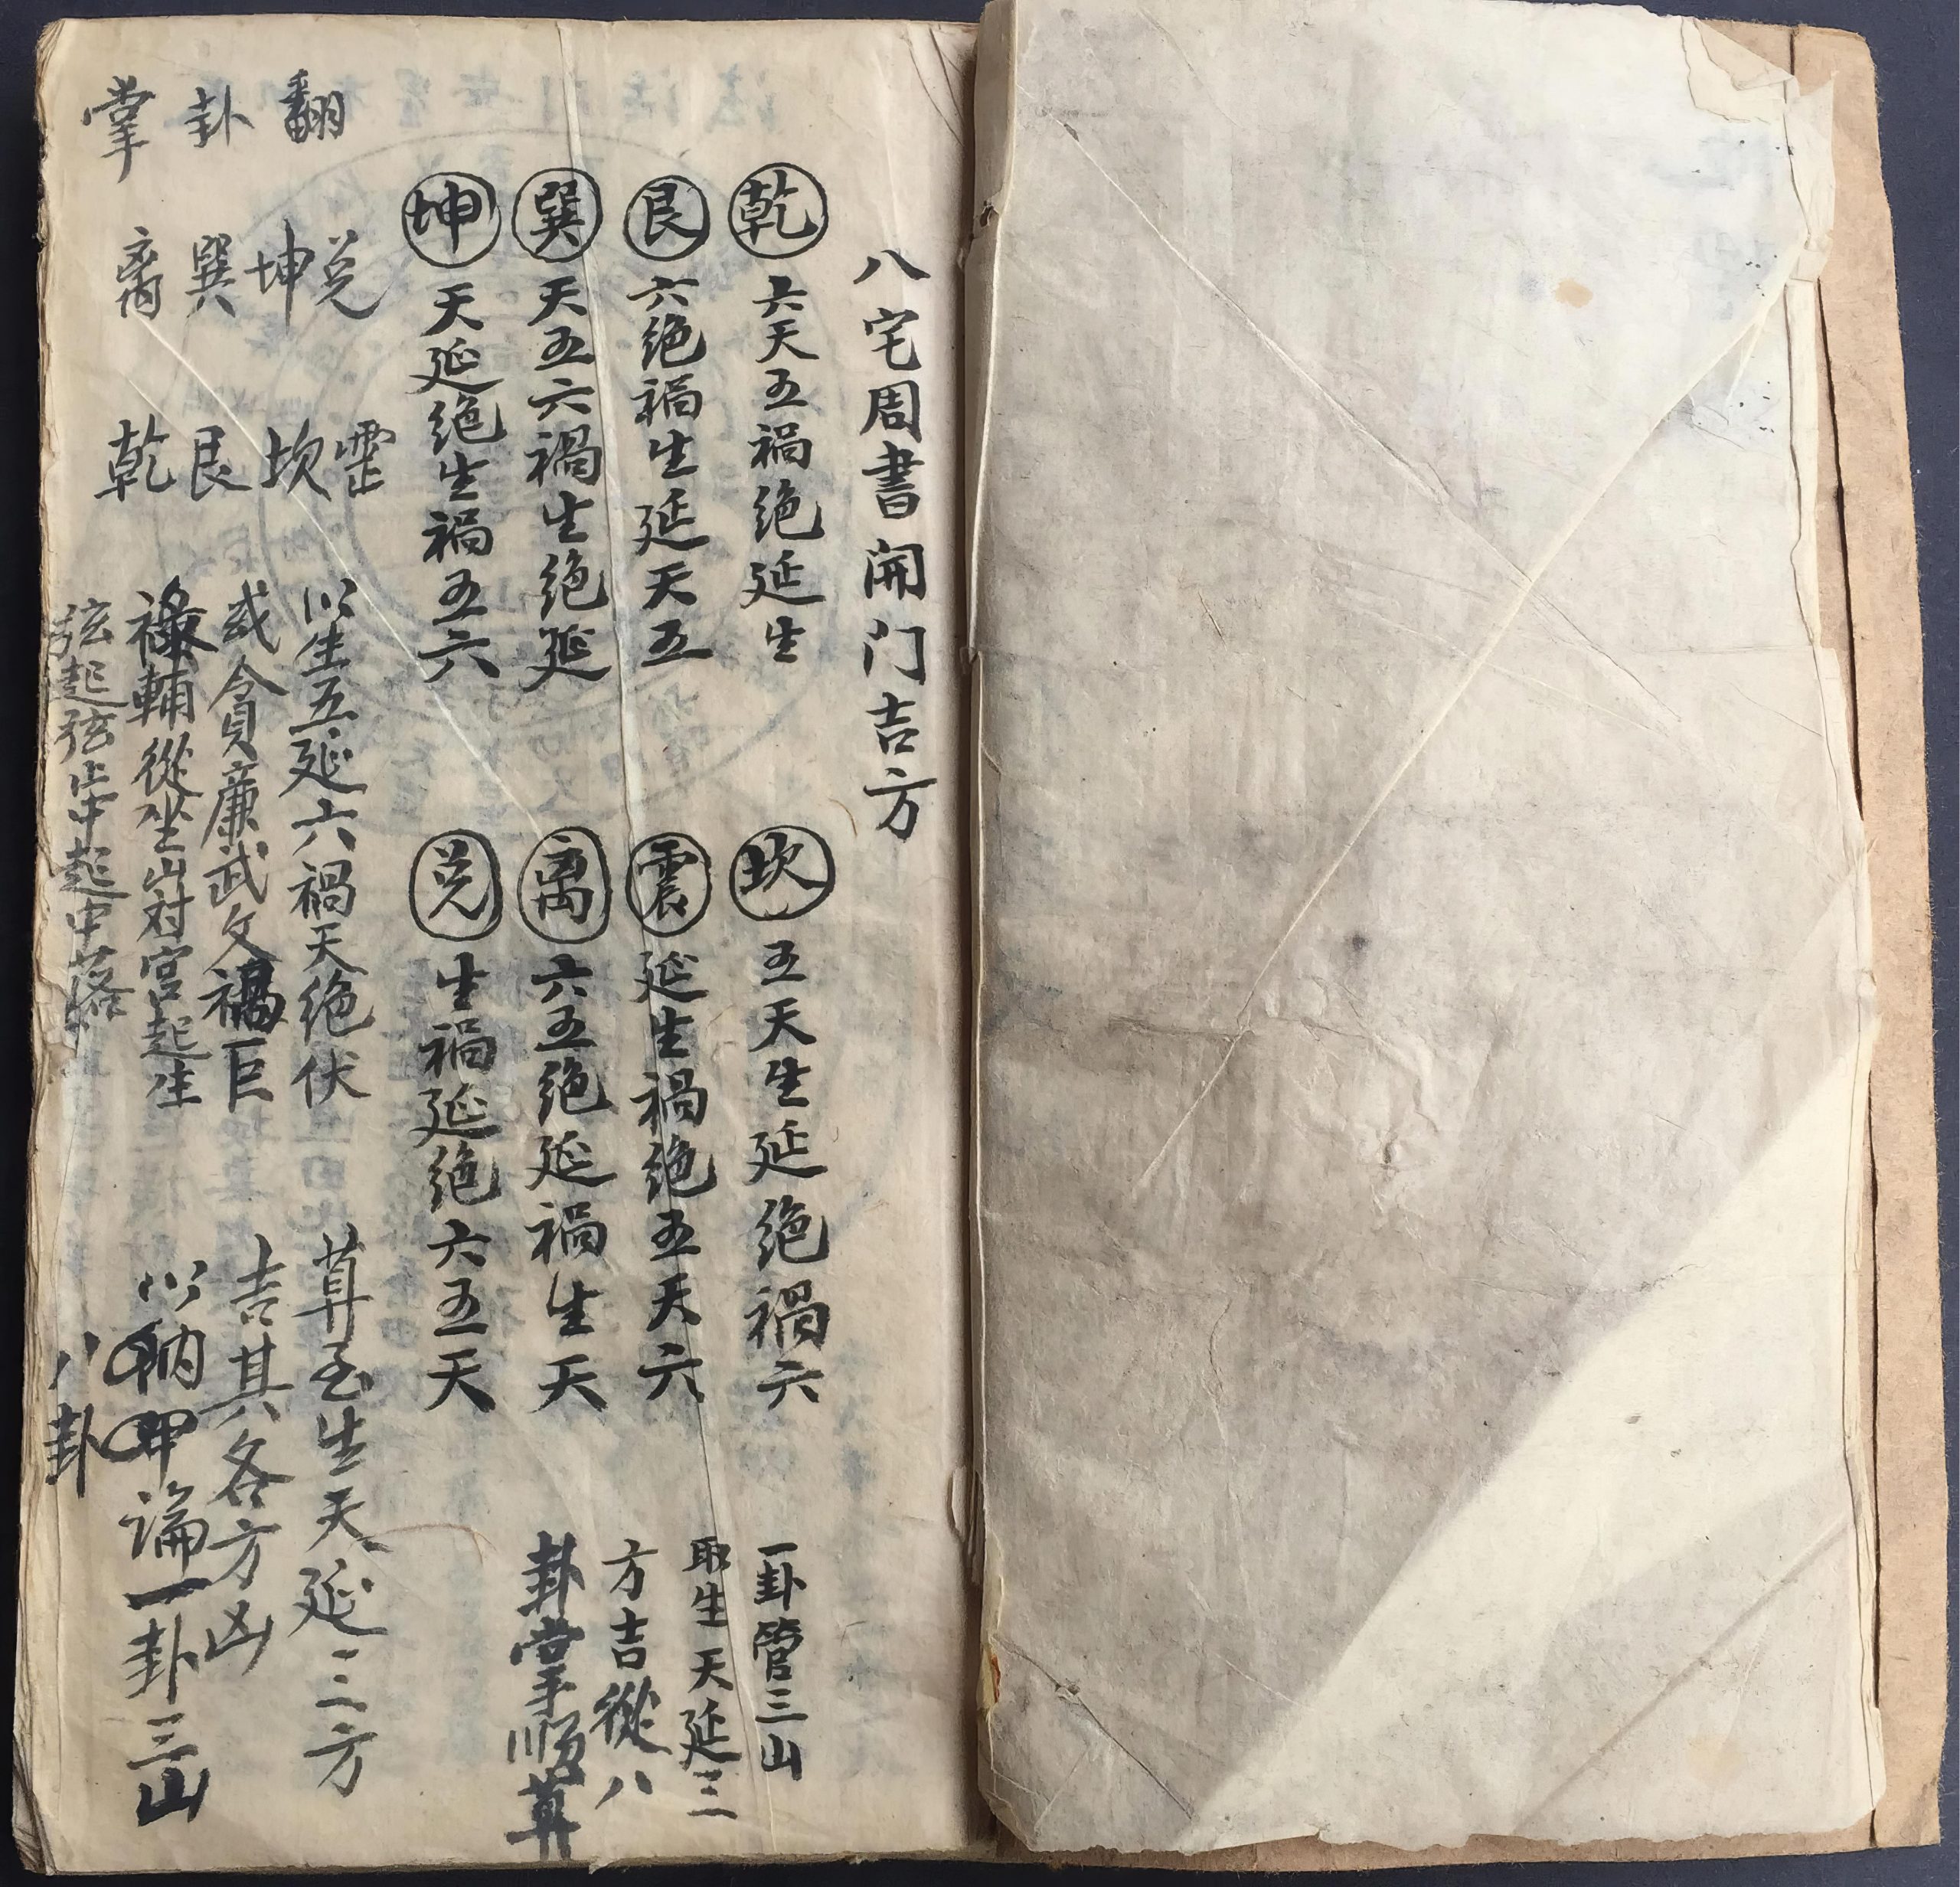 八宅周書開门吉方
乾 六天五禍绝延生
坎 五天生延绝禍六
艮 六绝禍生延天五
震 延生禍绝五天六
巽 天五六禍生绝延
离 六五绝延禍生天
坤 天延绝生禍五六
兑 生禍延绝六五天
一卦管三山
取生天延三
方吉從八
卦掌順算
翻卦掌
兑坤巽离
坎艮乾
以生五延六禍天绝伏
貪廉武文禍巨
祿輔從坐山对宫起生
弦起弦止中起中落
算至生天延三方
吉其八各方凶
以納甲論一卦三山
八卦